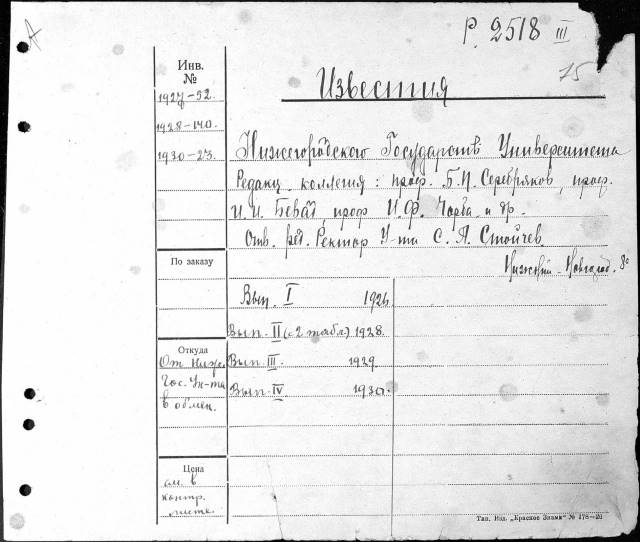 Р. 2518 III
75
Инв.
№
1927-52.
1928-140.
1930-23.
Известия
Нижегородского Государств Университета
Редакц. коллегия: проф. Б.П. Серебряков, проф.
проф И.Ф. Чорба и др.
Отв. ред. Ректор У-та С. А. Стойчев.
Нижний-Новгород. 8°
По заказу
Вып. I 1926.
Вып. II (с 2 табл.) 1928.
Откуда
От Ниже.
Гос. Ун-та
в обмен.
Вып. III. 1929.
Вып. IV 1930.
Цена
см. в
контр.
листе.
Тип. Изд. „Красное Знамя" № 178-26